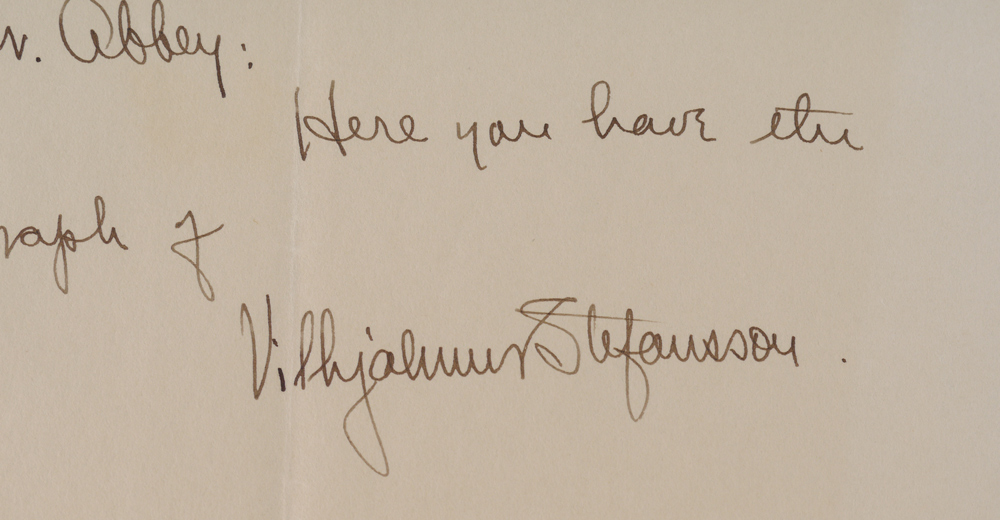 r. Abbey:
Here you have the
raph of
Vilhjalmur Stefansson.